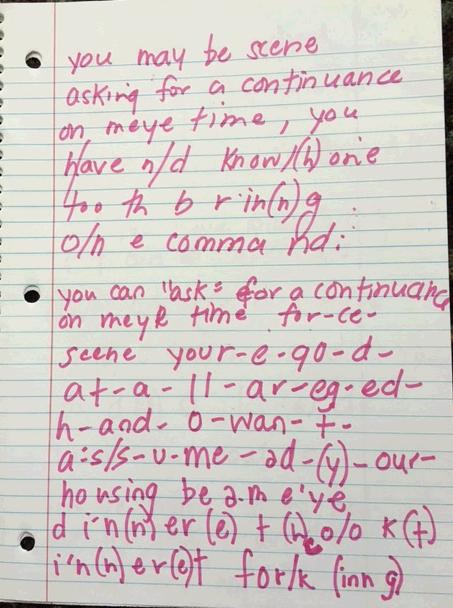 you may be scene
asking for a continuance
on meye time, you
have n/d know/(h) one
too th b r in(n)g
o/n e comma nd:
you can "ask" for a continuanc
on meye time for-ce-
scene your-e-go-d-
at-a-ll-ar-eg-ed-
h-and-o-wan-t-
a:s/s-u-me-ad-(y)-our-
housing be a.m e'ye
d i'n(n) er(e) t (h) o/o k(t)
i'n(n) er(e)t for/k (inn g)